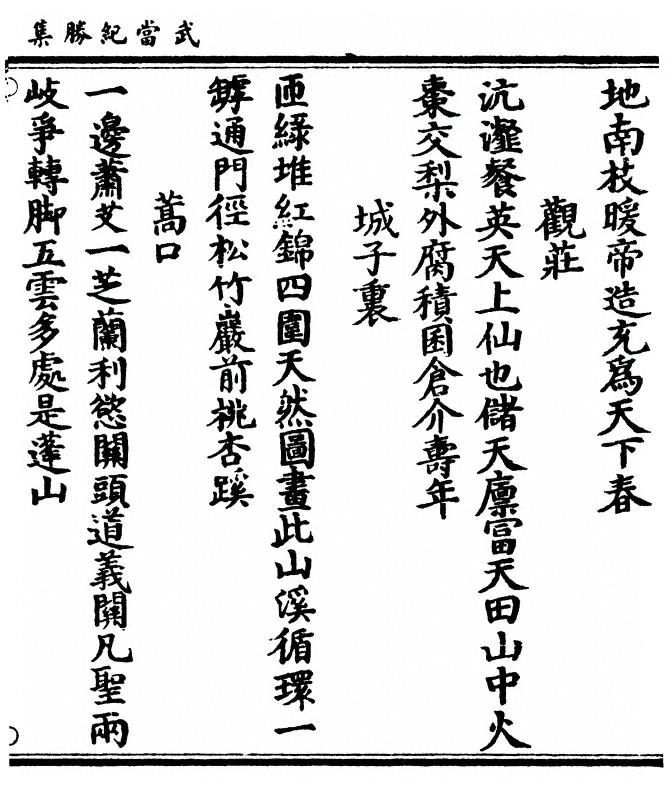 武當紀勝集
地南枝暖帝造充為天下春
觀莊
沆瀣餐英天上仙也儲天廩富天田山中火
棗交梨外腐積囷倉介壽年
城子裏
匝綠堆紅錦四圍天然圖畫此山溪循環一
罅通門徑松竹巖前桃杏蹊
蒿口
一邊蕭艾一芝蘭利慾關頭道義關凡聖兩
岐爭轉脚五雲多處是蓬山